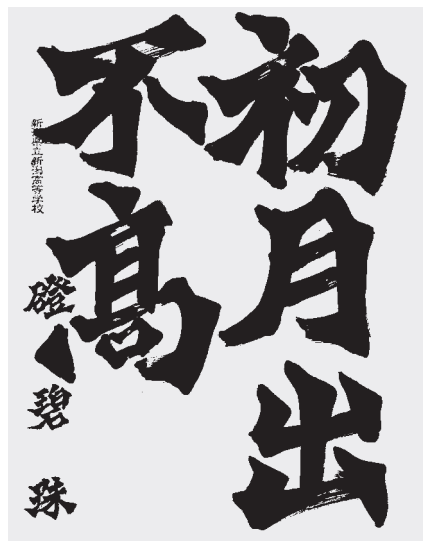 初月出
不高
新潟県立新潟高等学校
磴 碧珠